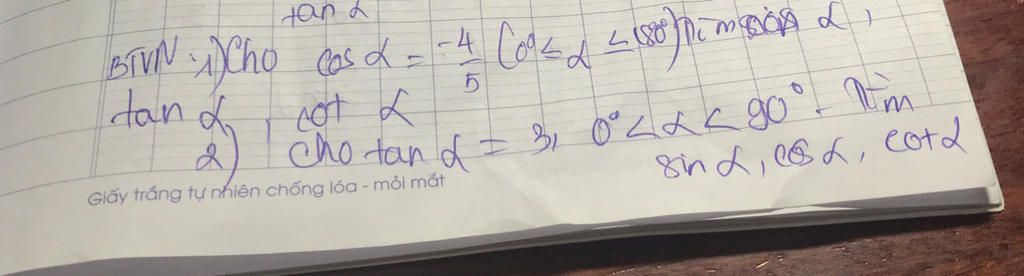 tan α
BTVN: 1) Cho cos α = -4/5 (0° ≤ α ≤ 180°) Tìm sin α,
tan α, cot α
2) cho tan α = 3, 0° < α < 90°. Tìm
sin α, cos α, cot α
Giấy trắng tự nhiên chống lóa - mỏi mắt